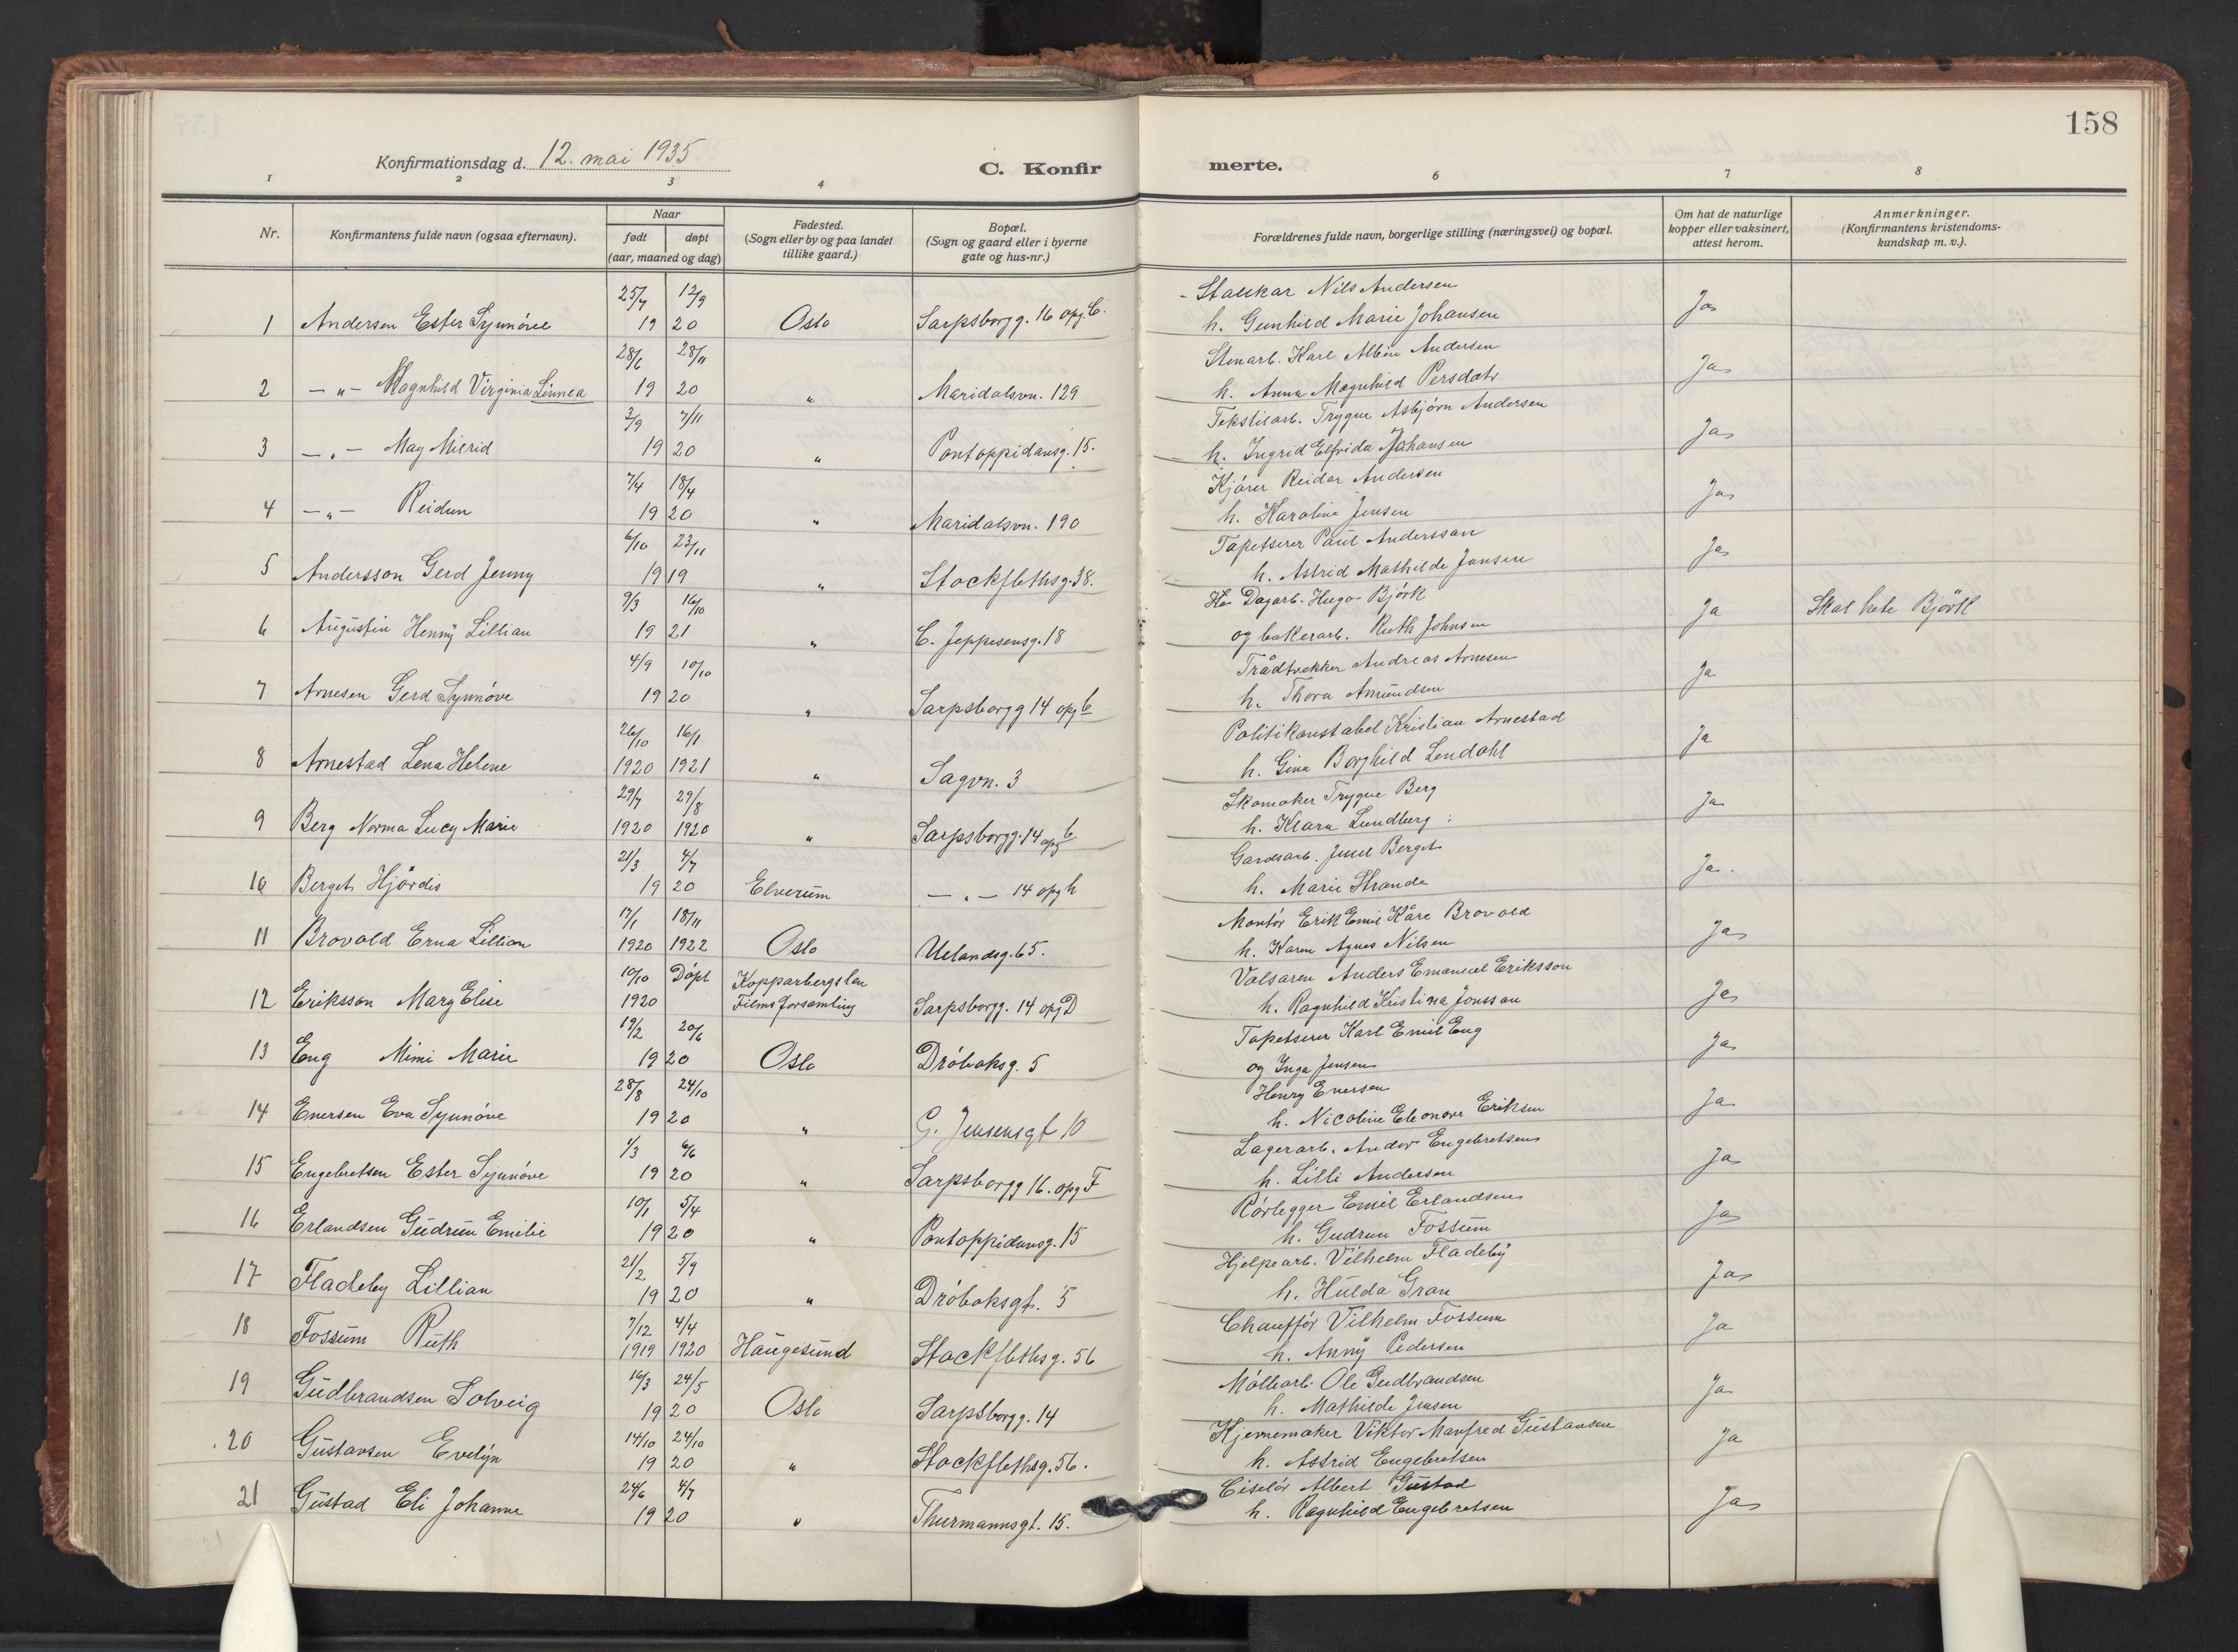 158
Konfirmationsdag d. 12. mai 1935
C. Konfir merte.
1 2 3 4 6 7 8
Nr. Konfirmantens fulde navn (ogsaa efternavn). Naar født døpt (aar, maaned og dag) Fødested. (Sogn eller by og paa landet tillike gaard.) Bopæl. (Sogn og gaard eller i byerne gate og hus-nr.) Forældrenes fulde navn, borgerlige stilling (næringsvei) og bopæl. Om hat de naturlige kopper eller vaksinert, attest herom. Anmerkninger. (Konfirmantens kristendoms-kundskap m. v.).
25/7 12/9 Nils Andersen
1 Andersen Ester Synnöve 19 20 Oslo Sarpsborgg. 16 opg. C. h. Gunhild Marie Johansen Ja
28/6 28/11 Stenarb. Karl Albin Andersen
2 — „ — Magnhild Virginia Linnea 19 20 „ Maridalsvn. 129 h. Anna Magnhild Persdatr Ja
3/9 7/11 Tekstilarb. Trygve Asbjörn Andersen
3 — „ — May Milrid 19 20 „ Pontoppidansg. 15. h. Ingrid Elfrida Johansen Ja
7/4 18/4 Kjörer Reidar Andersen
4 — „ — Reidun 19 20 „ Maridalsvn. 190 h. Karoline Jensen Ja
6/10 23/11 Tapetserer Paul Andersson
5 Andersson Gerd Jenny 19 19 „ Stockflethsg. 38. h. Astrid Mathilde Jansen Ja
9/3 16/10 Dagarb. Hugo Björk
6 Augustin Henny Lillian 19 21 „ C. Jeppesensg. 18 og bakerarb. Ruth Johnsen Ja Skal hete Björk
4/9 10/10 Trådtrekker Andreas Arnesen
7 Arnesen Gerd Synnöve 19 20 „ Sarpsborgg 14 opg b h. Thora Amundsen Ja
26/10 16/1 Politikonstabel Kristian Arnestad
8 Arnestad Lena Helene 1920 1921 „ Sagvn. 3 h. Gina Borghild Lendahl Ja
29/7 29/8 Skomaker Trygve Berg
9 Berg Norma Lucy Marie 1920 1920 „ Sarpsborgg. 14 opg b h. Klara Lundberg Ja
21/3 4/7 Gardsarb. Juul Berget
10 Berget Hjördis 19 20 Elverum — „ — 14 opg h h. Marie Strande Ja.
17/1 18/11 Montör Erik Emil Kåre Brovold
11 Brovold Erna Lillian 1920 1922 Oslo Uelandsg. 65. h. Karen Agnes Nilsen Ja
10/10 Döpt Kopparbergslen Valsaren Anders Emanuel Eriksson
12 Eriksson Mary Elise 1920 Films forsamling Sarpsborgg. 14 opg D h. Ragnhild Kristina Jonsson Ja
19/2 20/6 Tapetserer Karl Emil Eng
13 Eng Mimi Marie 19 20 Oslo Dröbaksg. 5 og Inga Jensen Ja
28/8 24/10 Henry Enersen
14 Enersen Eva Synnöve 19 20 „ G. Jensensgt 10 h. Nicoline Eleonore Eriksen Ja
1/3 6/6 Lagerarb. Andor Engebretsen
15 Engebretsen Ester Synnöve 19 20 „ Sarpsborgg 16. opg F h. Lilli Andersen Ja
10/1 5/4 Rörlegger Emil Erlandsen
16 Erlandsen Gudrun Emilie 19 20 „ Pontoppidansg. 15 h. Gudrun Fossum Ja
21/2 5/9 Hjelpearb. Vilhelm Fladeby
17 Fladeby Lillian 19 20 „ Dröbaksgt. 5 h. Hulda Gran Ja
7/12 4/4 Chaufför Vilhelm Fossum
18 Fossum Ruth 1919 1920 Haugesund Stockflethsg. 56 h. Anny Pedersen Ja
16/3 24/5 Möllearb. Ole Gudbrandsen
19 Gudbrandsen Solveig 19 20 Oslo Sarpsborgg. 14 h. Mathilde Jensen Ja
14/10 24/10 Kjernemaker Viktor Manfred Gustavsen
20 Gustavsen Evelyn 19 20 „ Stockflethsg. 56. h. Astrid Engebretsen Ja
24/6 4/7 Ciselör Albert Gustad
21 Gustad Eli Johanne 19 20 „ Thurmannsgt. 15. h. Ragnhild Engebretsen Ja